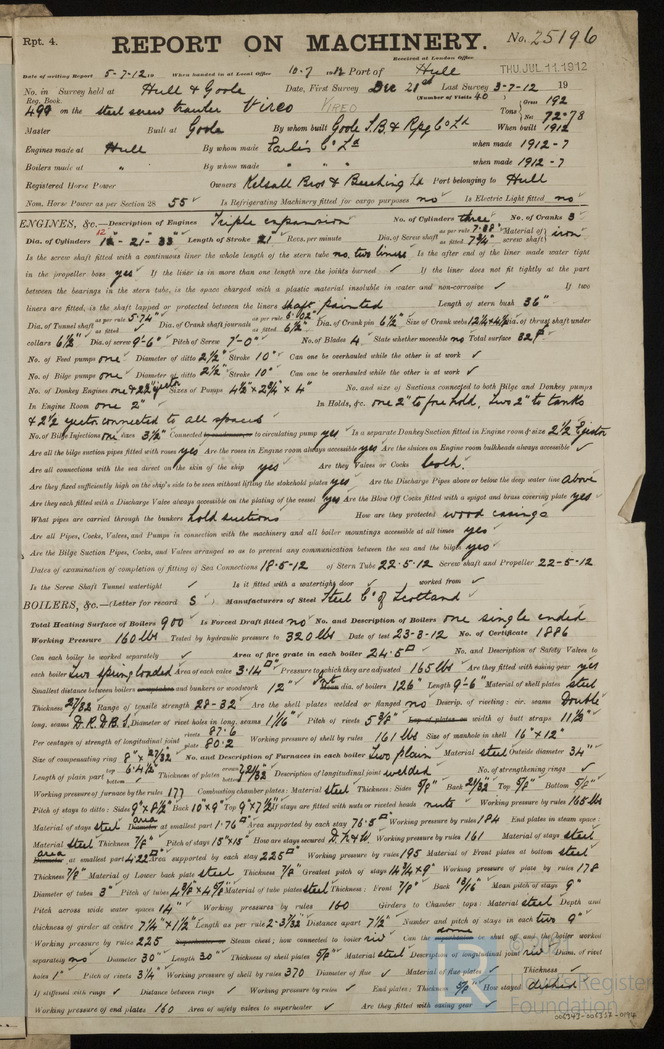 Rpt. 4.
REPORT ON MACHINERY. No. 25196
Received at London Office
Date of writing Report 5-7-12 19 When handed in at Local Office 10.7 1912 Port of Hull THU.JUL 11.1912
No. in Survey held at Hull & Goole Date, First Survey Dec 21st Last Survey 3-7-12 19
Reg. Book. (Number of Visits 40)
499 on the steel screw trawler Vireo VIREO Tons Gross 192 Net 72.78
Master Built at Goole By whom built Goole S.B. & Rpg Co Ld When built 1912
Engines made at Hull By whom made Earle's Co Ld when made 1912-7
Boilers made at " By whom made " " " when made 1912-7
Registered Horse Power Owners Kelsall Bros & Beeching Ld Port belonging to Hull
Nom. Horse Power as per Section 28 55 Is Refrigerating Machinery fitted for cargo purposes no Is Electric Light fitted no
ENGINES, &c.—Description of Engines Triple expansion No. of Cylinders three No. of Cranks 3
Dia. of Cylinders 12"- 21"- 33" Length of Stroke 21" Revs. per minute Dia. of Screw shaft as per rule 7.08" as fitted 7 3/4" Material of screw shaft iron
Is the screw shaft fitted with a continuous liner the whole length of the stern tube no, two liners Is the after end of the liner made water tight
in the propeller boss yes If the liner is in more than one length are the joints burned ✓ If the liner does not fit tightly at the part
between the bearings in the stern tube, is the space charged with a plastic material insoluble in water and non-corrosive ✓ If two
liners are fitted, is the shaft lapped or protected between the liners shaft painted Length of stern bush 36"
Dia. of Tunnel shaft as per rule 5.74" as fitted ✓ Dia. of Crank shaft journals as per rule 6.02" as fitted 6 1/2" Dia. of Crank pin 6 1/2" Size of Crank webs 12 1/4 x 4 1/2 Dia. of thrust shaft under
collars 6 1/2" Dia. of screw 9'-6" Pitch of Screw 9'-0" No. of Blades 4 State whether moveable no Total surface 32
No. of Feed pumps one Diameter of ditto 2 1/2" Stroke 10" Can one be overhauled while the other is at work ✓
No. of Bilge pumps one Diameter of ditto 2 1/2" Stroke 10" Can one be overhauled while the other is at work ✓
No. of Donkey Engines one & 2 1/2" ejector Sizes of Pumps 4 1/2" x 2 3/4" x 4" No. and size of Suctions connected to both Bilge and Donkey pumps
In Engine Room one 2" In Holds, &c. one 2" to fore hold, two 2" to tanks
& 2 1/2 ejector connected to all spaces
No. of Bilge Injections one sizes 3 1/2" Connected to circulating pump yes Is a separate Donkey Suction fitted in Engine room & size 2 1/2 Ejector
Are all the bilge suction pipes fitted with roses yes Are the roses in Engine room always accessible yes Are the sluices on Engine room bulkheads always accessible ✓
Are all connections with the sea direct on the skin of the ship yes Are they Valves or Cocks both.
Are they fixed sufficiently high on the ship's side to be seen without lifting the stokehold plates yes Are the Discharge Pipes above or below the deep water line above
Are they each fitted with a Discharge Valve always accessible on the plating of the vessel yes Are the Blow Off Cocks fitted with a spigot and brass covering plate yes
What pipes are carried through the bunkers hold suctions How are they protected wood casings
Are all Pipes, Cocks, Valves, and Pumps in connection with the machinery and all boiler mountings accessible at all times yes
Are the Bilge Suction Pipes, Cocks, and Valves arranged so as to prevent communication between the sea and the bilges yes
Dates of examination of completion of fitting of Sea Connections 18.5-12 of Stern Tube 22.5.12 Screw shaft and Propeller 22-5-12
Is the Screw Shaft Tunnel watertight ✓ Is it fitted with a watertight door ✓ worked from ✓
BOILERS, &c.—(Letter for record S) Manufacturers of Steel Steel Co of Scotland
Total Heating Surface of Boilers 900 Is Forced Draft fitted no No. and Description of Boilers one single ended
Working Pressure 160 lbs Tested by hydraulic pressure to 320 lbs Date of test 23-2-12 No. of Certificate 1886
Can each boiler be worked separately ✓ Area of fire grate in each boiler 24.5 No. and Description of Safety Valves to
each boiler two spring loaded Area of each valve 3.14 Pressure to which they are adjusted 165 lbs Are they fitted with easing gear yes
Smallest distance between boilers and bunkers or woodwork 12" Int. dia. of boilers 126" Length 9'-6" Material of shell plates steel
Thickness 27/32 Range of tensile strength 28-32 Are the shell plates welded or flanged no Descrip. of riveting: cir. seams Double
long. seams D.R.D.B.S. Diameter of rivet holes in long. seams 1 1/16" Pitch of rivets 5 3/8" width of butt straps 11 1/2"
Per centages of strength of longitudinal joint rivets 87.6 plate 80.2 Working pressure of shell by rules 161 lbs Size of manhole in shell 16" x 12"
Size of compensating ring 8" x 27/32 No. and Description of Furnaces in each boiler Two plain Material steel Outside diameter 34"
Length of plain part top 6.4 1/2" bottom Thickness of plates crown bottom 21/32 Description of longitudinal joint welded No. of strengthening rings ✓
Working pressure of furnace by the rules 177 Combustion chamber plates: Material steel Thickness: Sides 5/8" Back 21/32" Top 5/8" Bottom 5/8"
Pitch of stays to ditto: Sides 9" x 8 1/2" Back 10" x 9" Top 9" x 7 1/2" If stays are fitted with nuts or riveted heads nuts Working pressure by rules 165 lbs
Material of stays steel area at smallest part 1.76 Area supported by each stay 76.5 Working pressure by rules 184 End plates in steam space:
Material steel Thickness 7/8" Pitch of stays 15" x 15" How are stays secured D.N & W. Working pressure by rules 161 Material of stays steel
area at smallest part 4.22 Area supported by each stay 225 Working pressure by rules 195 Material of Front plates at bottom steel
Thickness 7/8" Material of Lower back plate steel Thickness 7/8" Greatest pitch of stays 14 3/4 x 9" Working pressure of plate by rules 178
Diameter of tubes 3" Pitch of tubes 4 3/8" x 4 3/8" Material of tube plates steel Thickness: Front 7/8" Back 13/16" Mean pitch of stays 9"
Pitch across wide water spaces 14" Working pressures by rules 160 Girders to Chamber tops: Material steel Depth and
thickness of girder at centre 7 1/4" x 1 1/2" Length as per rule 2-3 7/32 Distance apart 7 1/2" Number and pitch of stays in each two 9"
Working pressure by rules 225 Steam chest; how connected to boiler riv Can the dome be shut off and the boiler worked
separately no Diameter 30" Length 30" Thickness of shell plates 5/8" Material steel Description of longitudinal joint riv Diam. of rivet
holes 1" Pitch of rivets 3 1/4" Working pressure of shell by rules 370 Diameter of flue ✓ Material of flue plates ✓ Thickness
If stiffened with rings ✓ Distance between rings ✓ Working pressure by rules ✓ End plates: Thickness 5/8" How stayed dished
Working pressure of end plates 160 Area of safety valves to superheater ✓ Are they fitted with easing gear ✓
LR
© 2021
Lloyd's Register
Foundation